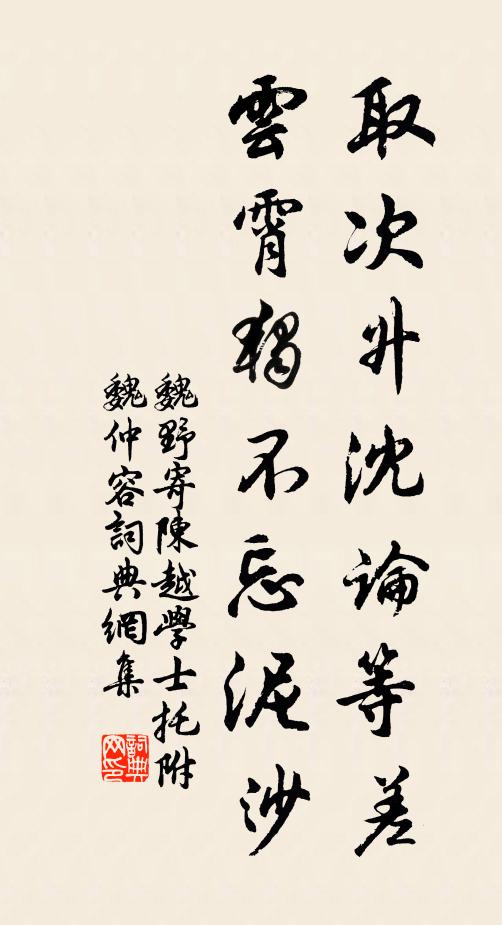 取次升沈論等差
雲霄獨不忘泥沙
魏野寄陳越學士托附
魏仲容詞典網集
詞典網印